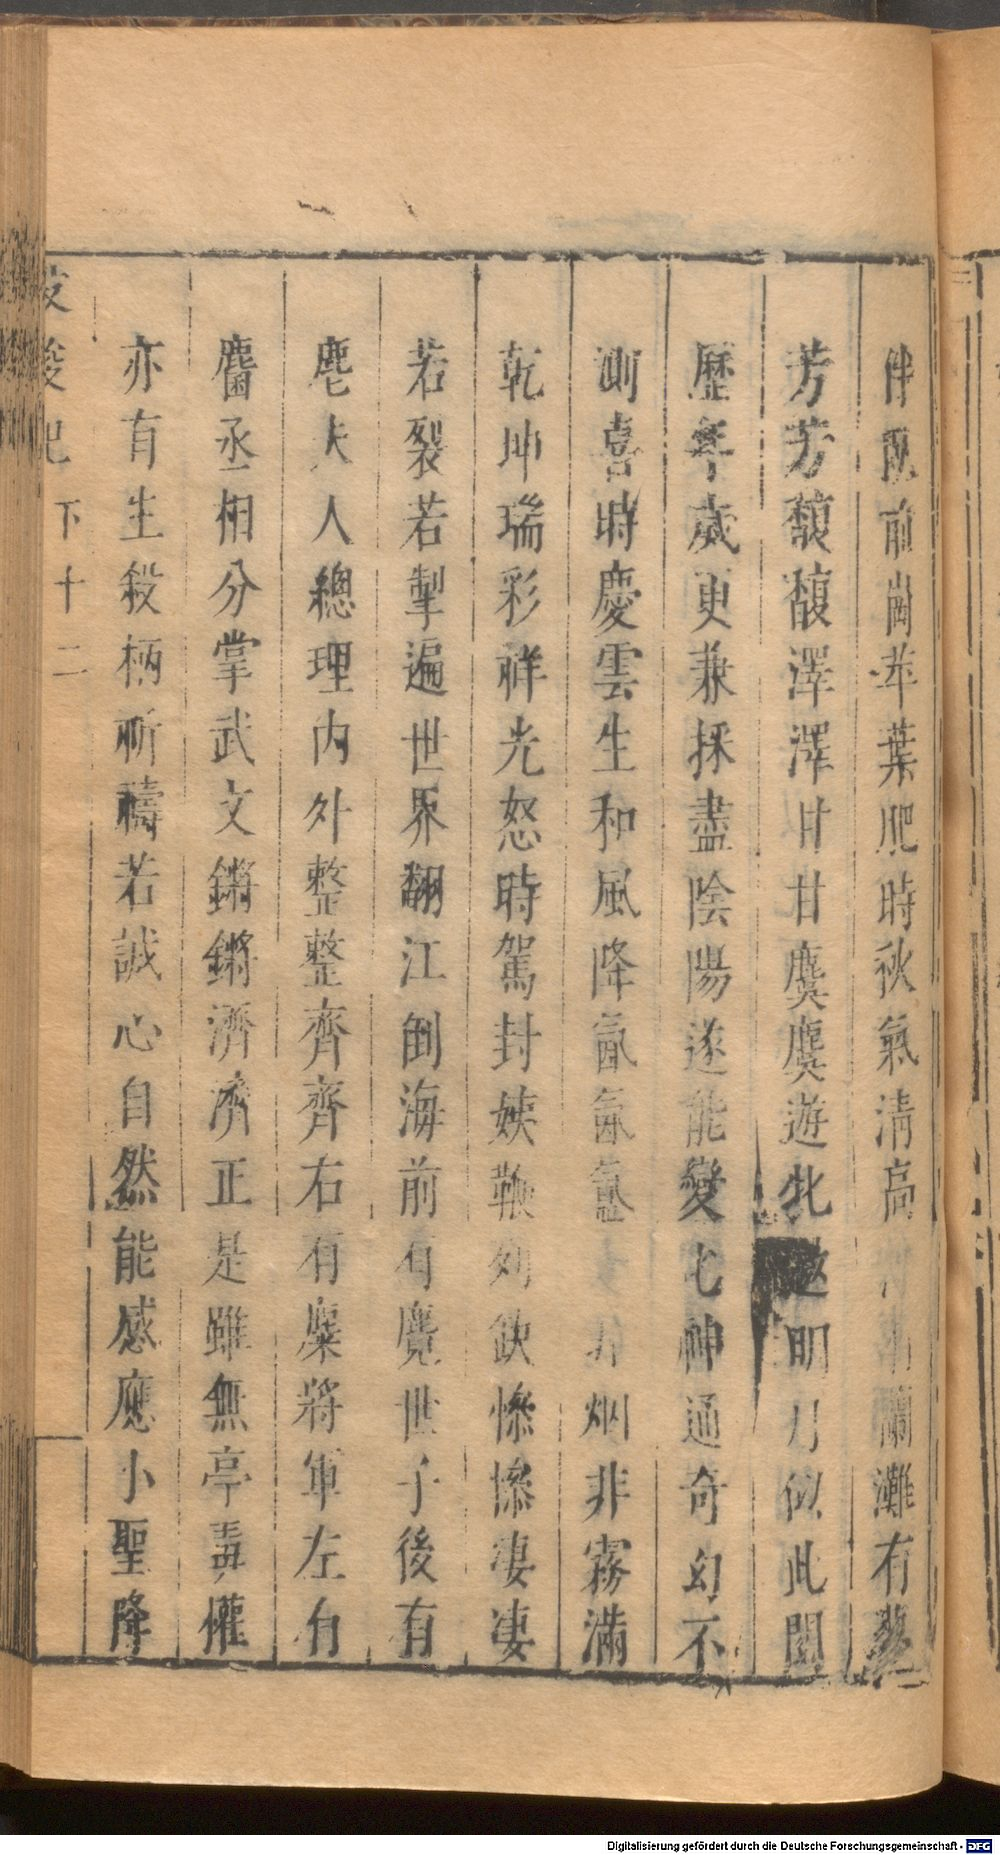 伴臥前崗苹葉肥時秋氣清高蘭灘有
芳芳馥馥澤澤甘甘麌麌遊牝遨明月似此閒
歷年歲更兼採盡陰陽遂能變化神通奇幻不
測喜時慶雲生和風降氤氤氳非烟非霧滿
乾坤瑞彩祥光怒時駕封姨鞭列缺慘慘凄凄
若裂若掣遍世界翻江倒海前有麑世子後有
麀夫人總理内外整整齊齊右有麋將軍左有
麕丞相分掌武文鏘鏘濟濟正是雖無亭毒權
亦有生殺柄祈禱若誠心自然能感應小聖降
下十二
Digitalisierung gefördert durch die Deutsche Forschungsgemeinschaft - DFG